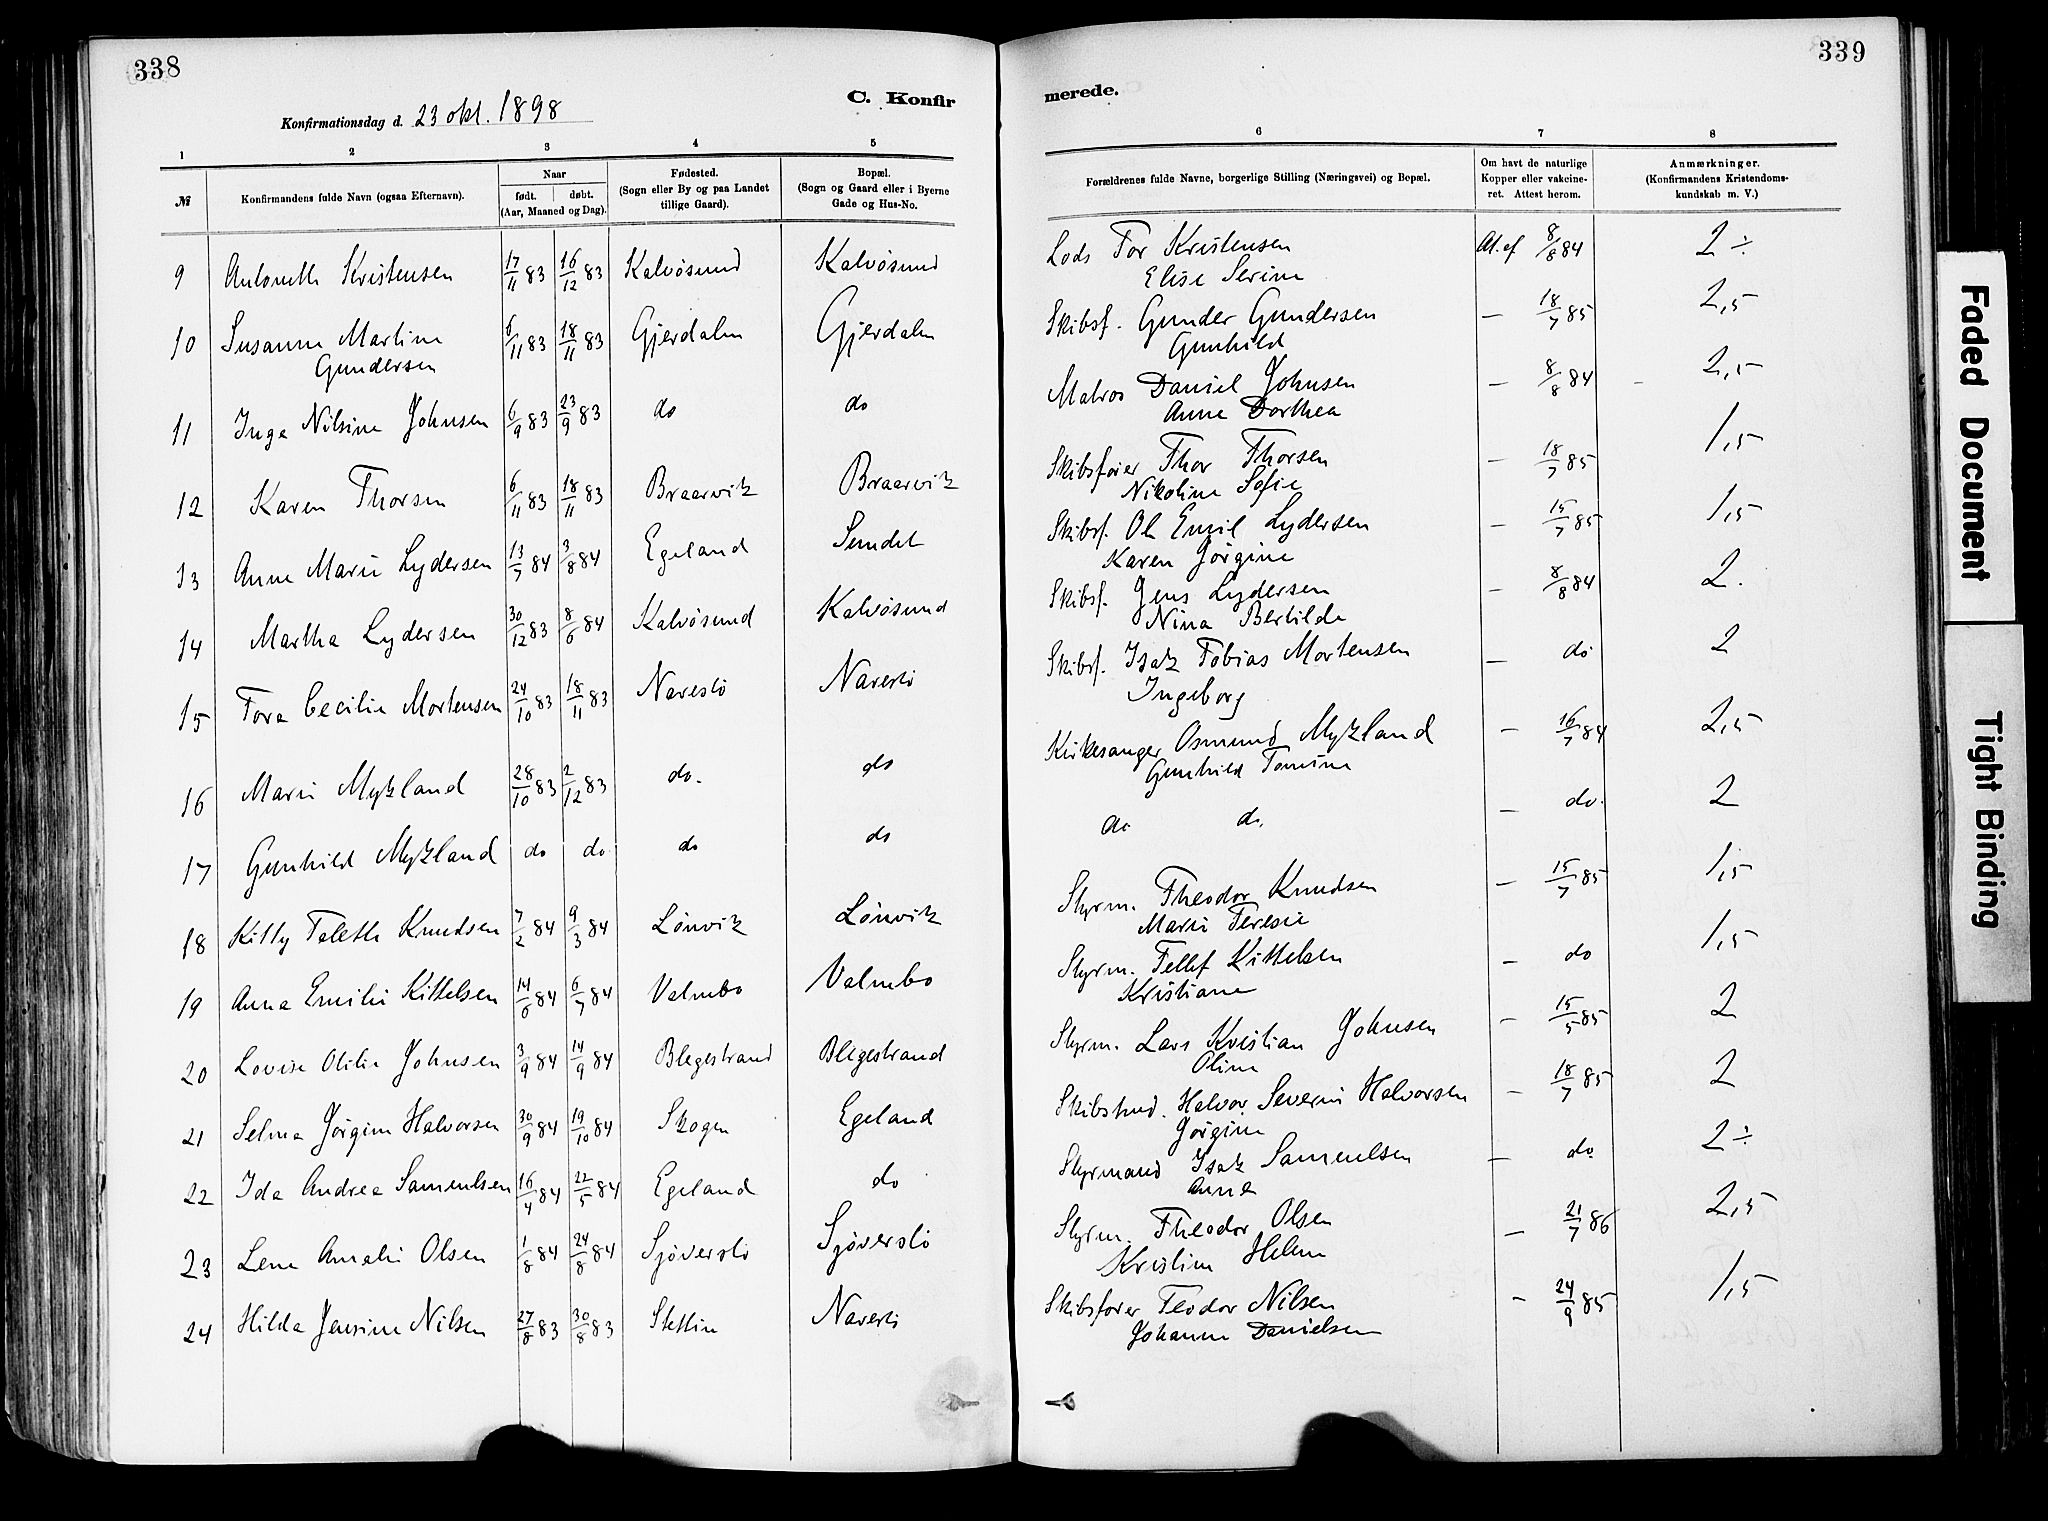 338
C. Konfir
Konfirmationsdag d. 23 okt. 1898
1 2 3 4 5
№ Konfirmandens fulde Navn (ogsaa Efternavn). Naar født. døbt. (Aar, Maaned og Dag). Fødested. (Sogn eller By og paa Landet tillige Gaard). Bopæl. (Sogn og Gaard eller i Byerne Gade og Hus-No.
9 Antonette Kristensen 17/11 83 16/12 83 Kalvøsund Kalvøsund
10 Susanne Martine 6/11 83 18/11 83 Gjerdalen Gjerdalen
Gundersen
11 Inga Nilsine Johnsen 6/9 83 23/9 83 do do
12 Karen Thorsen 6/11 83 18/11 83 Braarvik Braarvik
13 Anne Marie Lydersen 13/7 84 3/8 84 Egeland Sundet
14 Martha Lydersen 30/12 83 8/6 84 Kalvøsund Kalvøsund
15 Tora Cecilie Mortensen 24/10 83 18/11 83 Narestø Narestø
16 Marie Mykland 28/10 83 2/12 83 do. do
17 Gunhild Mykland do do do do
18 Kitty Taleth Knudsen 7/2 84 9/3 84 Lønvik Lønvik
19 Anna Emilie Kittelsen 14/6 84 6/7 84 Valmbo Valmbo
20 Lovise Otilie Johnsen 3/9 84 14/9 84 Blegestrand Blegestrand
21 Selma Jørgine Halvorsen 30/9 84 19/10 84 Skogen Egeland
22 Ida Andrea Samuelsen 16/4 84 22/5 84 Egeland do
23 Lena Amalie Olsen 1/8 84 24/8 84 Sjøverstø Sjøverstø
24 Hilda Jensine Nilsen 27/8 83 30/8 83 Stettin Narestø
339
merede.
6 7 8
Forældrenes fulde Navne, borgerlige Stilling (Næringsvei) og Bopæl. Om havt de naturlige Kopper eller vakcineret. Attest herom. Anmærkninger. (Konfirmandens Kristendomskundskab m. V.)
Lods Tor Kristensen At. ef 8/8 84 2 ÷
Elise Serine
Skibsf. Gunder Gundersen — 18/7 85 2,5
Gunhild
Matros Daniel Johnsen — 8/8 84 2,5
Anne Dorthea
Skibsfører Thor Thorsen — 18/7 85 1,5
Nikoline Sofie
Skibsf. Ole Emil Lydersen — 15/7 85 1,5
Karen Jørgine
Skibsf. Jens Lydersen — 8/8 84 2.
Nina Bertilde
Skibsf. Isak Tobias Mortensen — do 2
Ingeborg
Kirkesanger Osmund Mykland — 16/7 84 2,5
Gunhild Tomine
do do. — do. 2
Styrm. Theodor Knudsen — 15/7 85 1,5
Marie Teresie
Styrm. Tellef Kittelsen — do 1,5
Kristiane
Styrm. Lars Kristian Johnsen — 15/5 85 2
Oline
Skibstmd. Halvor Severin Halvorsen — 18/7 85 2
Jørgine
Styrmand Isak Samuelsen — do. 2 ÷
Anne
Styrm. Theodor Olsen — 21/7 86 2,5
Kristine Helene
Skibsfører Teodor Nilsen — 24/9 85 1,5
Johanne Danielsen
Faded Document
Tight Binding